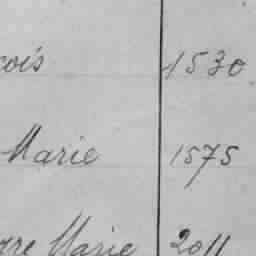 çois 1530
Marie 1575
rre Marie 2011